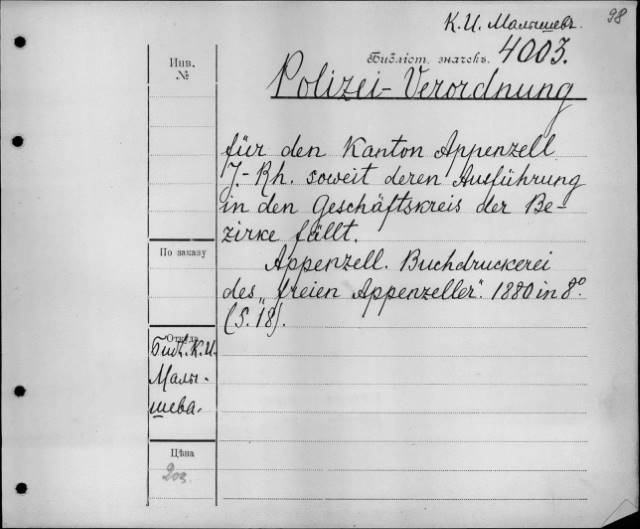 98
К. И. Малышевъ.
Библіот. значекъ. 4003.
Инв.
№
Polizei-Verordnung
für den Kanton Appenzell
J.-Rh. soweit deren Ausführung
in den Geschäftskreis der Be-
zirke fällt.
По заказу
Appenzell. Buchdruckerei
des „freien Appenzeller". 1880 in 8°.
(S. 18).
Откуда
Библ. К. И.
Малы-
шева.
Цѣна